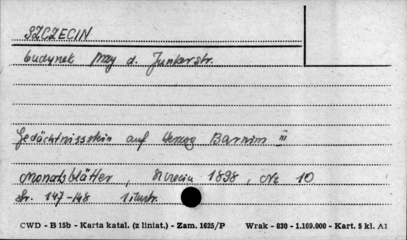 SZCZECIN
budynek przy d. Junkerstr.
Gedächtnisstein auf Herzog Barnim III
Monatsblätter, Szczecin 1898, Nr 10
str. 147-148 1 ilustr.
CWD - B 15b - Karta katal. (z liniat.) - Zam. 1625/P Wrak - 830 - 1.169.000 - Kart. 5 kl. A1